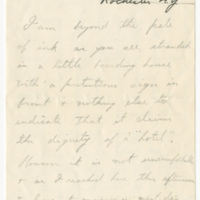 Rochester N.Y.
I am beyond the pale
of ink as you see, stranded
in a little boarding house
with a pretentious sign in
front & nothing else to
indicate that it claims
the dignity of a "hotel".
However it is not uncomfortable
& as I reached here this afternoon